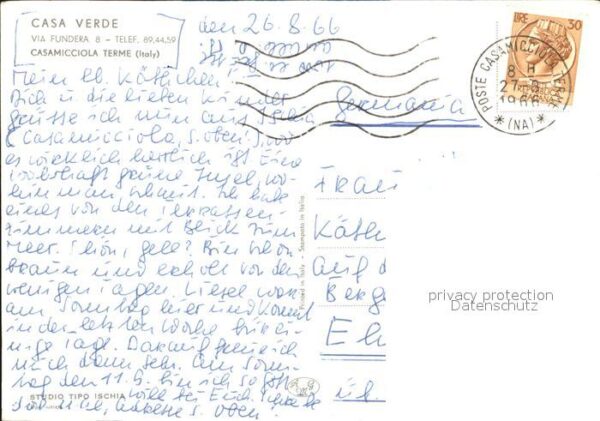 CASA VERDE
VIA FUNDERA 8 - TELEF. 89.44.59
CASAMICCIOLA TERME (Italy)
den 26.8.66
LIRE 30
POSTE CASAMICCIOLA TERME
8
27-8
1966
* (NA) *
Mein lb. Käthchen!
Dich u. die lieben Kinder
grüsse ich nun aus Ischia
(Casamicciola, s. oben!), wo
es wirklich herrlich ist. Eine
grüne Insel, wo-
hin man schaut. Ich habe
eines von den Terrassen-
zimmern mit Blick zum
Meer. Schön, gell? Bin schon
braun und erholt von den
wenigen Tagen. Liesel war
am Sonntag hier und kommt
in der letzten Woche für ei-
nige Tage. Darauf freue ich
mich dann sehr. Am Sonn-
tag den 11.9. bin ich so Gott
will bei Euch.
Adresse s. oben!
Germania
Frau
Käth
auf d
Berg
El
privacy protection
Datenschutz
Printed in Italy - Stampato in Italia
STUDIO TIPO ISCHIA